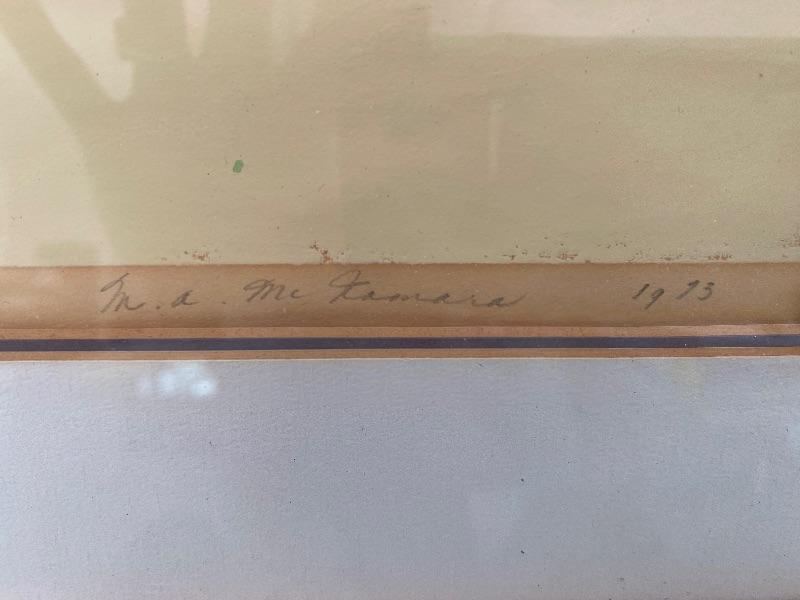 M. a. Mc Namara 1973